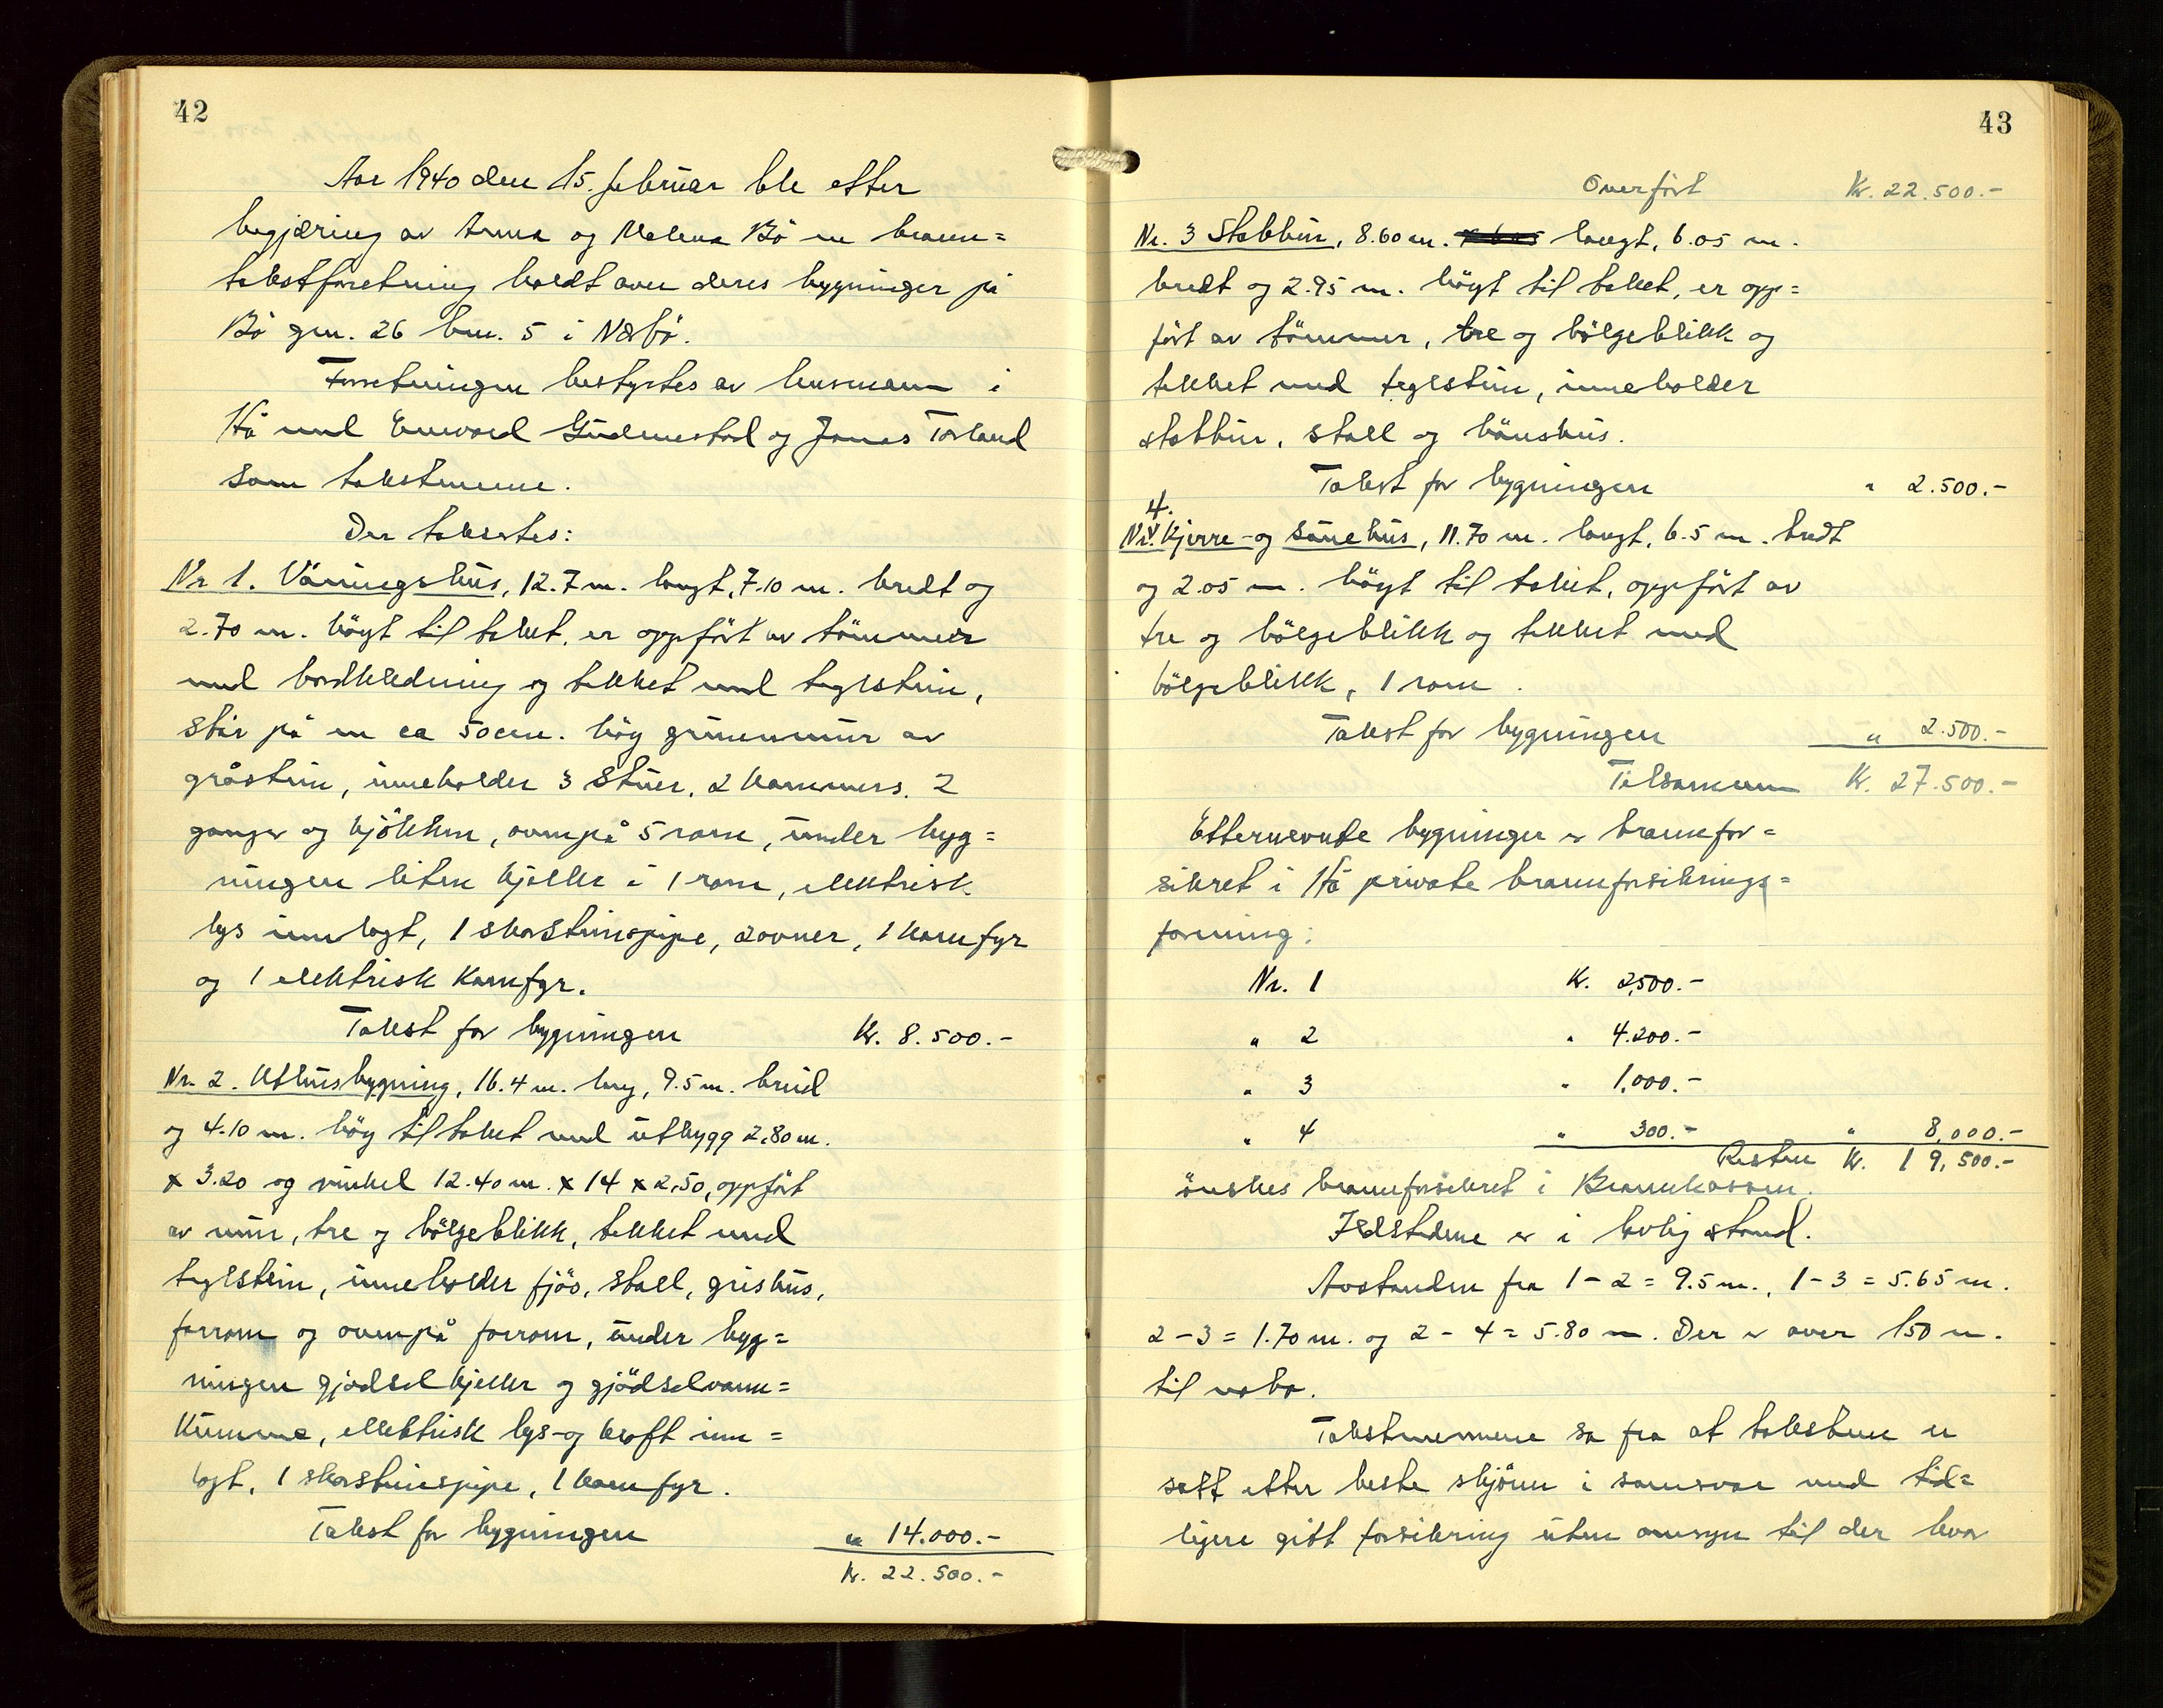 42
Aar 1940 den 15. februar ble etter
begjæring av Anna og Malena Bö en brann=
takstforetning holdt over deres bygninger på
Bö gnr. 26 bnr. 5 i Nærbö.
Forretningen bestyrtes av lensmann i
Hå med Enevald Gudmestad og Jonas Torland
som takstmenn.
Der taksertes:
Nr 1. Våningshus, 12.7 m. langt, 7.10 m. bredt og
2.70 m. högt til taket, er oppfört av tömmer
med bordkledning og tekket med teglstein,
står på en ca 50 cm. höy grunnmur av
gråstein, inneholder 3 stuer, 2 kammers, 2
ganger og kjökken, ovenpå 5 rom, under byg=
ningen liten kjeller i 1 rom, elektrisk
lys innlagt, 1 skorsteinspipe, 2 ovner, 1 komfyr
og 1 elektrisk komfyr.
Takst for bygningen Kr. 8.500.-
Nr. 2. Uthusbygning, 16.4 m. lang, 9.5 m. breid
og 4.10 m. höy til taket med utbygg 2.80 m.
x 3.20 og vinkel 12.40 m. x 14 x 2,50, oppfört
av mur, tre og bölgeblikk, tekket med
teglstein, inneholder fjös, stall, grishus,
forrom og ovenpå forrom, under byg=
ningen gjödselkjeller og gjödselvann=
kumme, elektrisk lys- og kraft inn=
lagt, 1 skorsteinspipe, 1 komfyr.
Takst for bygningen " 14.000.-
Kr. 22.500.-
43
Overfört Kr. 22.500.-
Nr. 3 Stabbur, 8.60 m. langt, 6.05 m.
bredt og 2.95 m. högt til taket, er opp=
fört av tömmer, tre og bölgeblikk og
tekket med teglstein, inneholder
stabbur, stall og hönshus.
Takst for bygningen " 2.500.-
4.
Nr. Kjerre- og sauehus, 11.70 m. langt, 6.5 m. bredt
og 2.05 m. högt til taket, oppfört av
tre og bölgeblikk og tekket med
bölgeblikk, 1 rom.
Takst for bygningen " 2.500.-
Tilsammen Kr. 27.500.-
Etternevnte bygninger er brannfor=
sikret i Hå private brannforsikrings=
forening:
Nr. 1 Kr. 2,500.-
" 2 " 4.200.-
" 3 " 1.000.-
" 4 " 300.- " 8,000.-
Resten Kr. 19,500.-
önskes brannforsikret i Brannkassen.
Ildstedene er i lovlig stand.
Avstanden fra 1 - 2 = 9.5 m., 1 - 3 = 5.65 m.
2 - 3 = 1.70 m. og 2 - 4 = 5.80 m. Der er over 150 m.
til nabo.
Takstmennene sa fra at taksten er
satt etter beste skjönn i samsvar med tid=
ligere gitt forsikring uten omsyn til der hvor